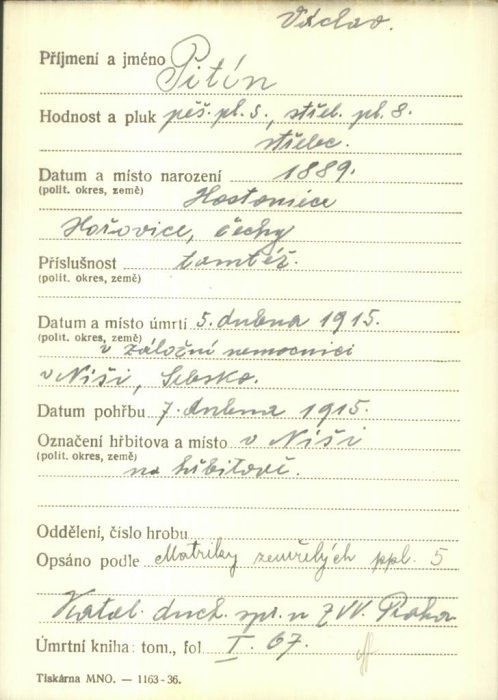 Václav.
Příjmení a jméno Pitín
Hodnost a pluk pěš. pl. 5., střel. pl. 8.
střelec.
Datum a místo narození 1889.
(polit. okres, země) Hostomice
Hořovice, Čechy
Příslušnost tamtéž.
(polit. okres, země)
Datum a místo úmrtí 5. dubna 1915.
(polit. okres, země) v záložní nemocnici
v Niši, Srbsko.
Datum pohřbu 7. dubna 1915.
Označení hřbitova a místo v Niši
(polit. okres, země) na hřbitově.
Oddělení, číslo hrobu
Opsáno podle Matriky zemřelých ppl. 5
Katol. duch. spr. u ZVV. Praha
Úmrtní kniha: tom., fol I. 67.
Tiskárna MNO. — 1163-36.